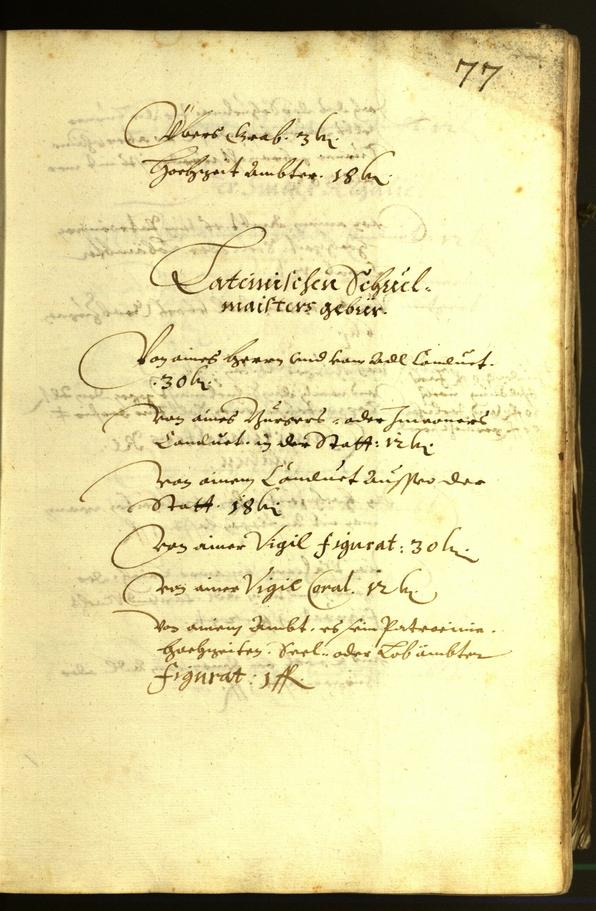 77
Übers Grab. 3 kr.
Hochzeit ämbter. 18 kr.
Lateinischen Schuel-
maisters gebür.
Von aines Herrn und vom Adl Conduct.
. 30 kr.
Von aines Burgers - oder Inwoners
Conduct. in der Statt: 12 kr.
Von ainem Conduct ausser der
Statt. 18 kr.
Von ainer Vigil figurat: 30 kr.
Von ainer Vigil Coral. 12 kr.
Von ainem Ambt. es sein Patrocinie.
hochzeiten. Seel- oder Lobämbter
figurat: 1 fl.